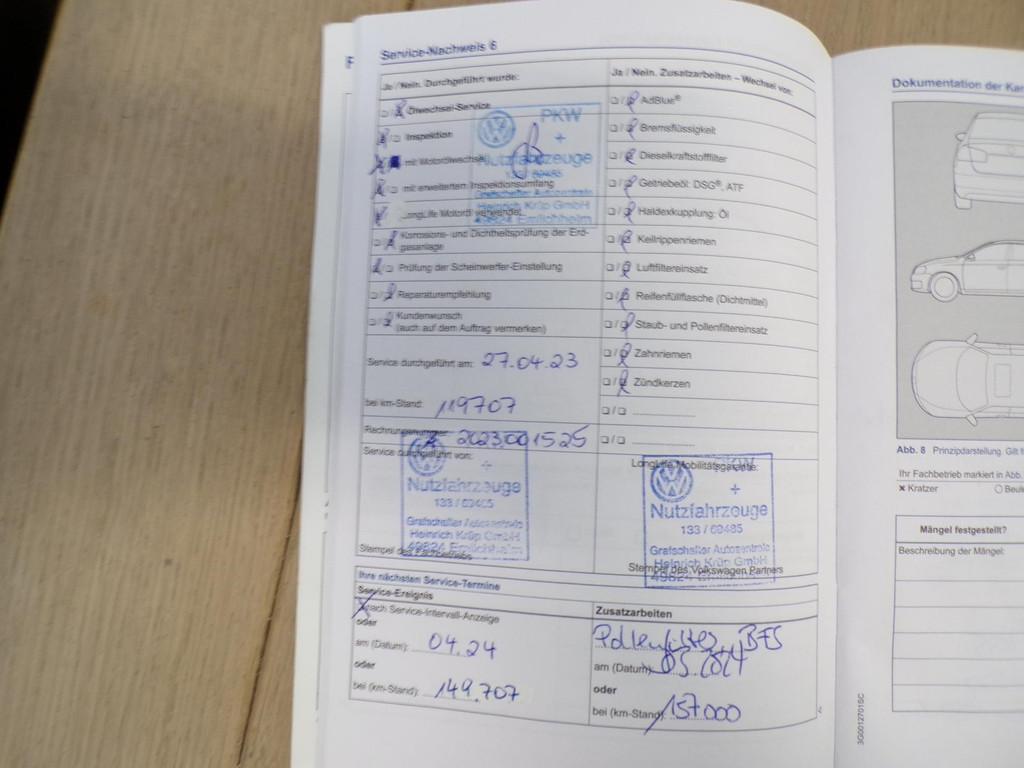 Service-Nachweis 6
Ja / Nein. Durchgeführt wurde:
Ölwechsel-Service
Inspektion
mit Motorölwechsel
mit erweitertem Inspektionsumfang
LongLife Motoröl verwendet
Korrosions- und Dichtheitsprüfung der Erd-
gasanlage
Prüfung der Scheinwerfer-Einstellung
Reparaturempfehlung
Kundenwunsch
(auch auf dem Auftrag vermerken)
Service durchgeführt am: 27.04.23
bei km-Stand: 119707
Rechnungsnummer: 2023001525
Service durchgeführt von:
Stempel des Fachbetriebs
Ja / Nein. Zusatzarbeiten – Wechsel von:
AdBlue®
Bremsflüssigkeit
Dieselkraftstofffilter
Getriebeöl: DSG®, ATF
Haldexkupplung: Öl
Keilrippenriemen
Luftfiltereinsatz
Reifenfüllflasche (Dichtmittel)
Staub- und Pollenfiltereinsatz
Zahnriemen
Zündkerzen
LongLife Mobilitätsgarantie:
Stempel des Volkswagen Partners
PKW
+
Nutzfahrzeuge
133 / 69485
Grafschafter Autozentrale
Heinrich Krüp GmbH
49824 Emlichheim
+
Nutzfahrzeuge
133 / 69485
Grafschafter Autozentrale
Heinrich Krüp GmbH
49824 Emlichheim
PKW
+
Nutzfahrzeuge
133 / 69485
Grafschafter Autozentrale
Heinrich Krüp GmbH
49824 Emlichheim
Ihre nächsten Service-Termine
Service-Ereignis
nach Service-Intervall-Anzeige
oder
am (Datum): 04.24
oder
bei (km-Stand): 149.707
Zusatzarbeiten
Pollenfilter, BFS
am (Datum): 05.2024
oder
bei (km-Stand) 157000
Dokumentation der
Abb. 8 Prinzipdarstellung. Gilt
Ihr Fachbetrieb markiert in Abb.
× Kratzer
Mängel festgestellt?
Beschreibung der Mängel:
3G0012701SC